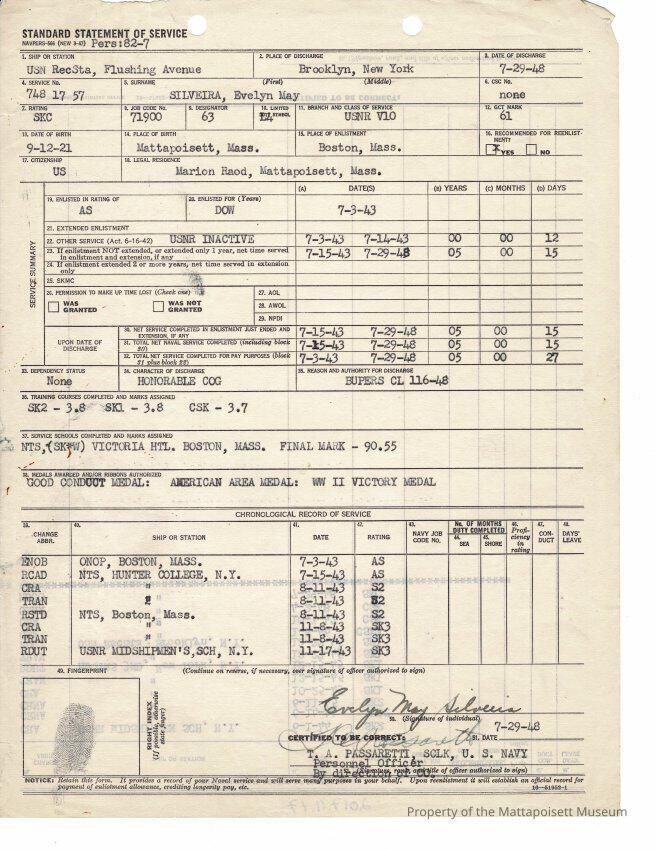 STANDARD STATEMENT OF SERVICE
NAVPERS-566 (NEW 3-47) Pers:82-7
1. SHIP OR STATION 2. PLACE OF DISCHARGE 3. DATE OF DISCHARGE
USN RecSta, Flushing Avenue Brooklyn, New York 7-29-48
4. SERVICE No. 5. SURNAME (First) (Middle) 6. CSC No.
748 17 57 SILVEIRA, Evelyn May none
7. RATING 8. JOB CODE No. 9. DESIGNATOR 10. LIMITED 11. BRANCH AND CLASS OF SERVICE 12. GCT MARK
SKC 71900 63 USNR V10 61
13. DATE OF BIRTH 14. PLACE OF BIRTH 15. PLACE OF ENLISTMENT 16. RECOMMENDED FOR REENLISTMENT?
9-12-21 Mattapoisett, Mass. Boston, Mass. X YES NO
17. CITIZENSHIP 18. LEGAL RESIDENCE
US Marion Raod, Mattapoisett, Mass.
SERVICE SUMMARY
19. ENLISTED IN RATING OF 20. ENLISTED FOR (Years) (A) DATE(S) (B) YEARS (C) MONTHS (D) DAYS
AS DOW 7-3-43
21. EXTENDED ENLISTMENT
22. OTHER SERVICE (Act. 6-16-42) USNR INACTIVE 7-3-43 7-14-43 00 00 12
23. If enlistment NOT extended, or extended only 1 year, net time served in enlistment and extension, if any 7-15-43 7-29-48 05 00 15
24. If enlistment extended 2 or more years, net time served in extension only
25. SKMC
26. PERMISSION TO MAKE UP TIME LOST (Check one) 27. AOL
WAS GRANTED WAS NOT GRANTED 28. AWOL
29. NPDI
UPON DATE OF DISCHARGE
30. NET SERVICE COMPLETED IN ENLISTMENT JUST ENDED AND EXTENSION, IF ANY 7-15-43 7-29-48 05 00 15
31. TOTAL NET NAVAL SERVICE COMPLETED (including block 30) 7-15-43 7-29-48 05 00 15
32. TOTAL NET SERVICE COMPLETED FOR PAY PURPOSES (block 31 plus block 22) 7-3-43 7-29-48 05 00 27
33. DEPENDENCY STATUS 34. CHARACTER OF DISCHARGE 35. REASON AND AUTHORITY FOR DISCHARGE
None HONORABLE COG BUPERS CL 116-48
36. TRAINING COURSES COMPLETED AND MARKS ASSIGNED
SK2 - 3.8 SK1 - 3.8 CSK - 3.7
37. SERVICE SCHOOLS COMPLETED AND MARKS ASSIGNED
NTS, (SK-W) VICTORIA HTL. BOSTON, MASS. FINAL MARK - 90.55
38. MEDALS AWARDED AND/OR RIBBONS AUTHORIZED
GOOD CONDUCT MEDAL: AMERICAN AREA MEDAL: WW II VICTORY MEDAL
CHRONOLOGICAL RECORD OF SERVICE
39. CHANGE ABBR. 40. SHIP OR STATION 41. DATE 42. RATING 43. NAVY JOB CODE NO. No. OF MONTHS DUTY COMPLETED 44. SEA 45. SHORE 46. Proficiency in rating 47. CONDUCT 48. DAYS' LEAVE
ENOB ONOP, BOSTON, MASS. 7-3-43 AS
RCAD NTS, HUNTER COLLEGE, N.Y. 7-15-43 AS
CRA " 8-11-43 S2
TRAN " 8-11-43 S2
RSTD NTS, Boston, Mass. 8-11-43 S2
CRA " 11-8-43 SK3
TRAN " 11-8-43 SK3
RDUT USNR MIDSHIPMEN'S,SCH, N.Y. 11-17-43 SK3
49. FINGERPRINT (Continue on reverse, if necessary, over signature of officer authorized to sign)
RIGHT INDEX
(If possible, otherwise state finger)
Evelyn May Silveira
50. (Signature of individual) 7-29-48
CERTIFIED TO BE CORRECT: 51. DATE
T. A. PASSARETTI, SCLK, U. S. NAVY
Personnel Officer
By direction of CO
(Signature, rank, and title of officer authorized to sign)
NOTICE: Retain this form. It provides a record of your Naval service and will serve many purposes in your behalf. Upon reenlistment it will establish an official record for
payment of enlistment allowance, crediting longevity pay, etc. 16-51952-1
Property of the Mattapoisett Museum